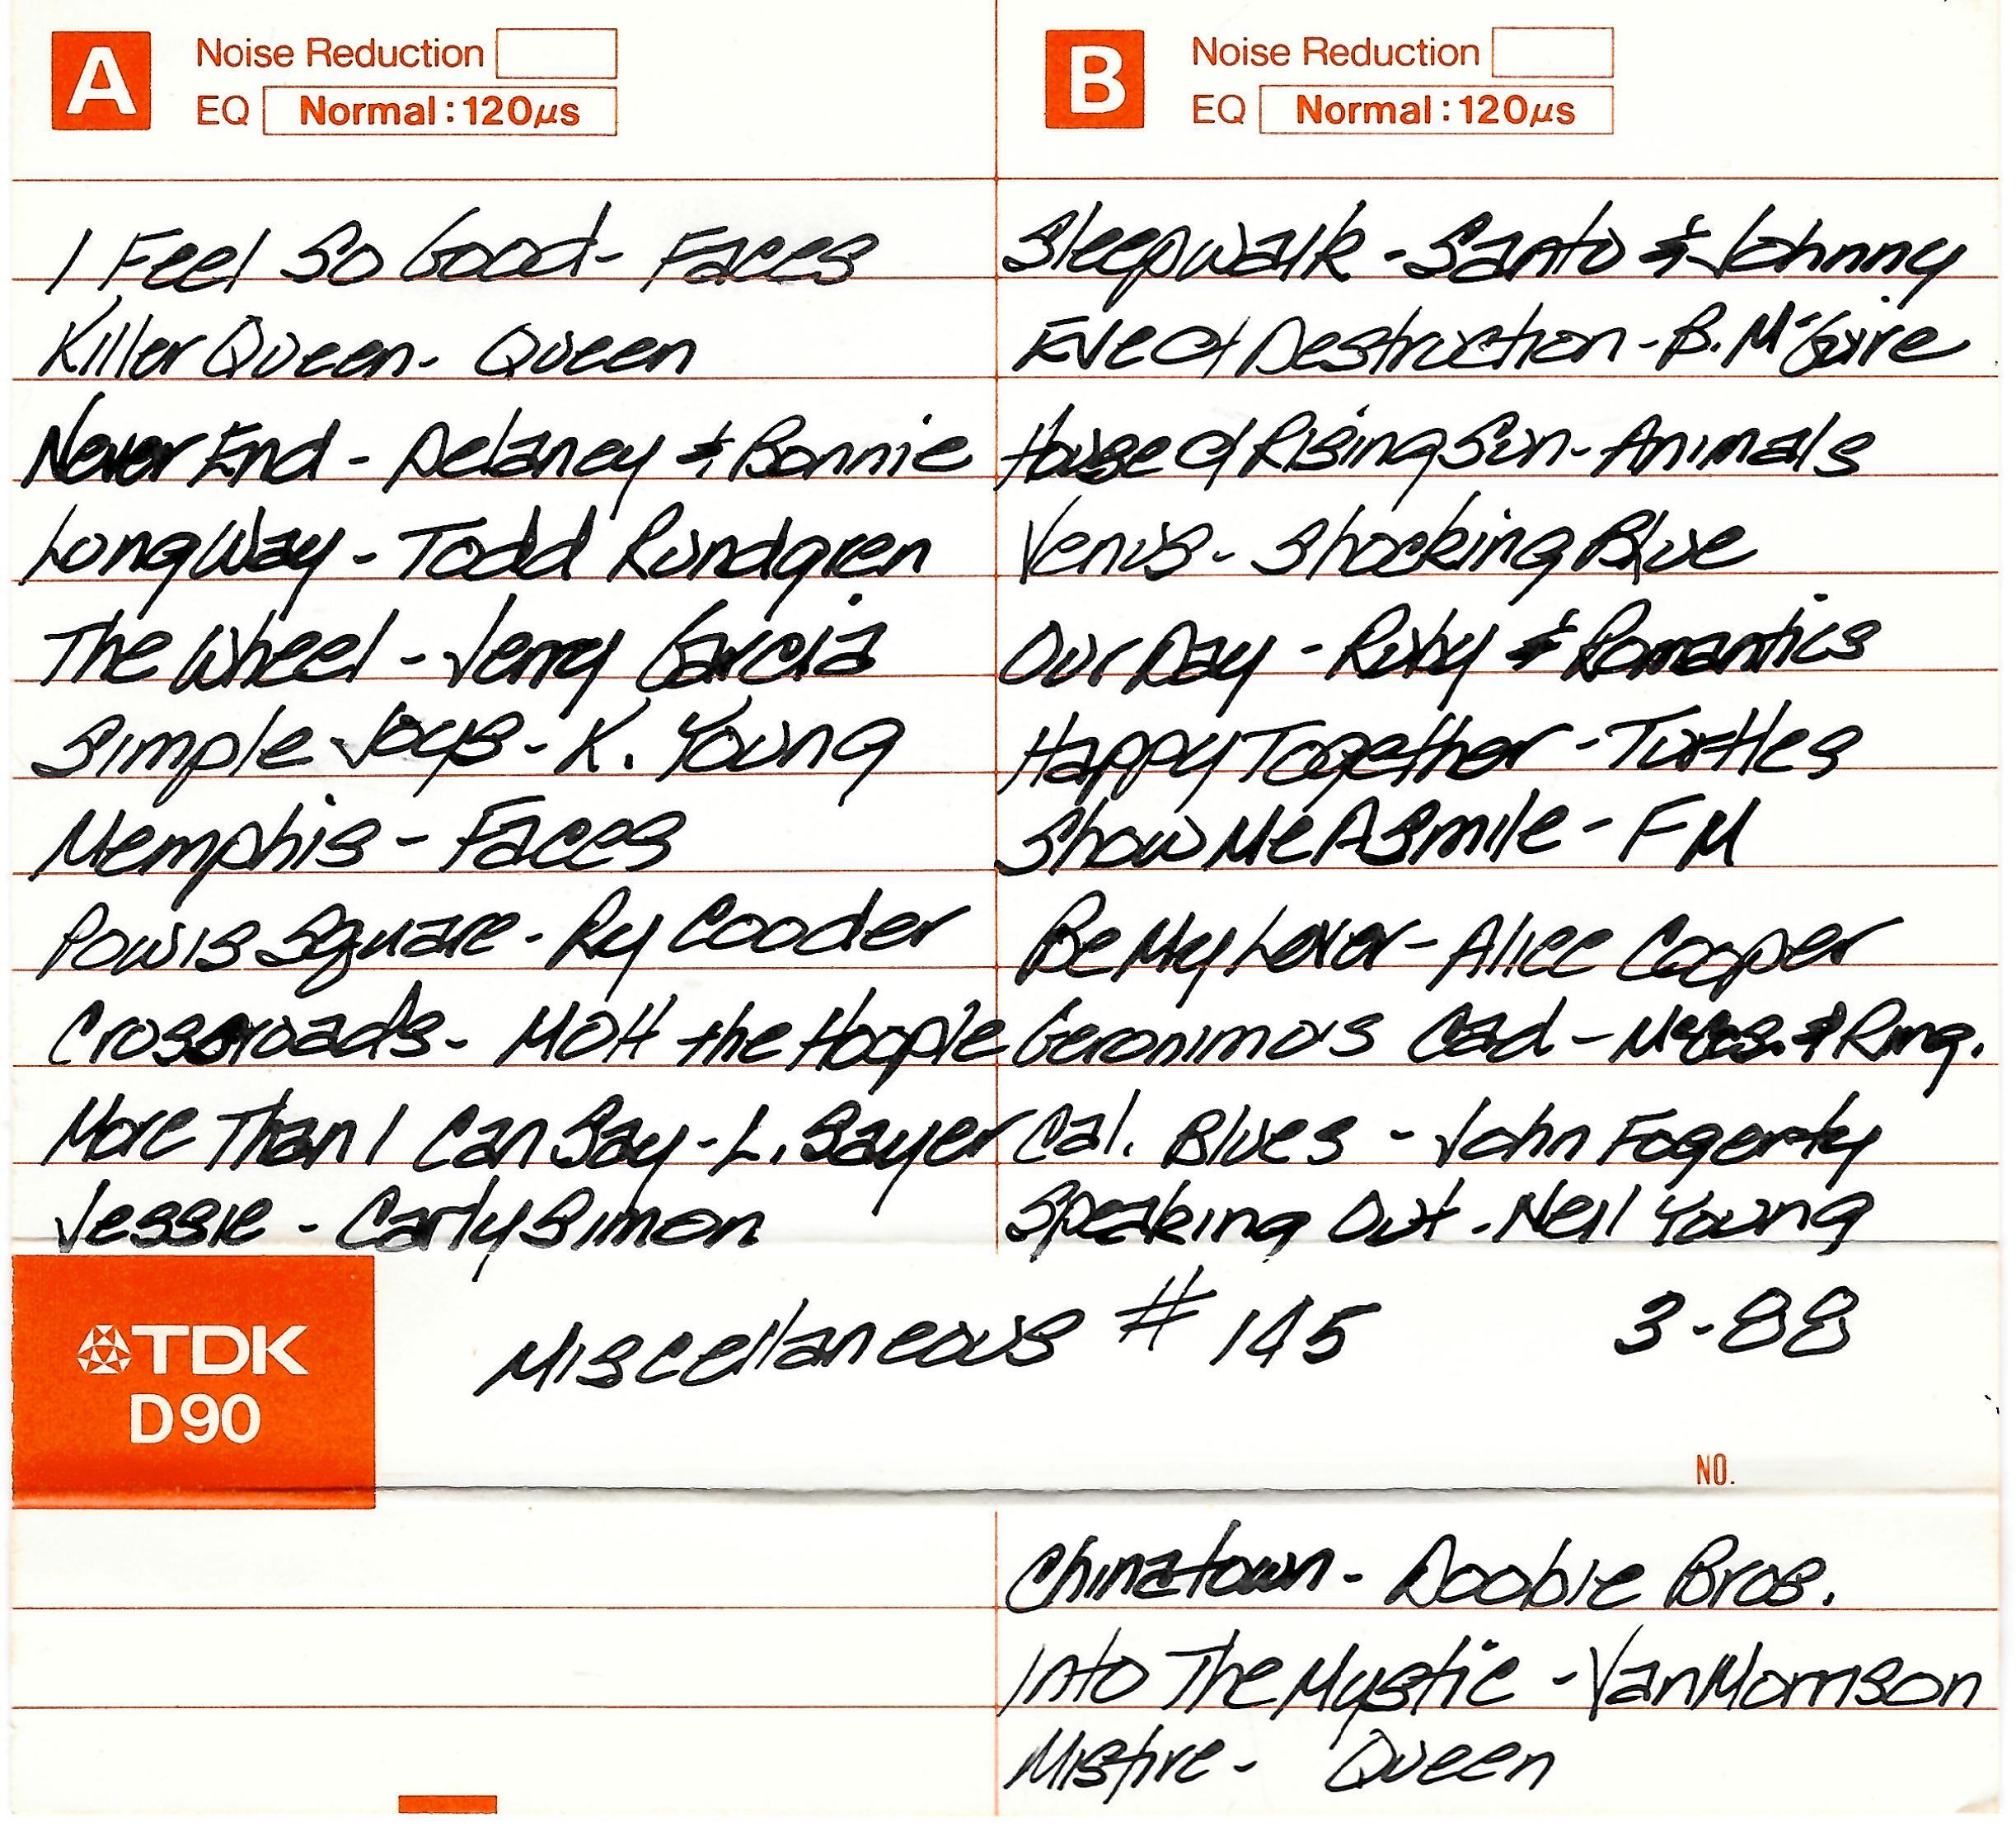 A
Noise Reduction
EQ Normal : 120µs
I Feel So Good - Faces
Killer Queen - Queen
Never End - Delaney & Bonnie
Long Way - Todd Rundgren
The Wheel - Jerry Garcia
Simple Joys - K. Young
Memphis - Faces
Powis Square - Ry Cooder
Crossroads - Mott the Hoople
More Than I Can Say - L. Sayer
Jessie - Carly Simon
B
Noise Reduction
EQ Normal : 120µs
Sleepwalk - Santo & Johnny
Eve of Destruction - B. McGuire
House of Rising Sun - Animals
Venus - Shocking Blue
Our Day - Ruby & Romantics
Happy Together - Turtles
Show Me A Smile - FM
Be My Lover - Alice Cooper
Geronimo's Cad - & Ring.
Cal. Blues - John Fogerty
Speaking Out - Neil Young
TDK
D90
Miscellaneous # 145 3-88
NO.
Chinatown - Doobie Bros.
Into The Mystic - Van Morrison
Misfire - Queen